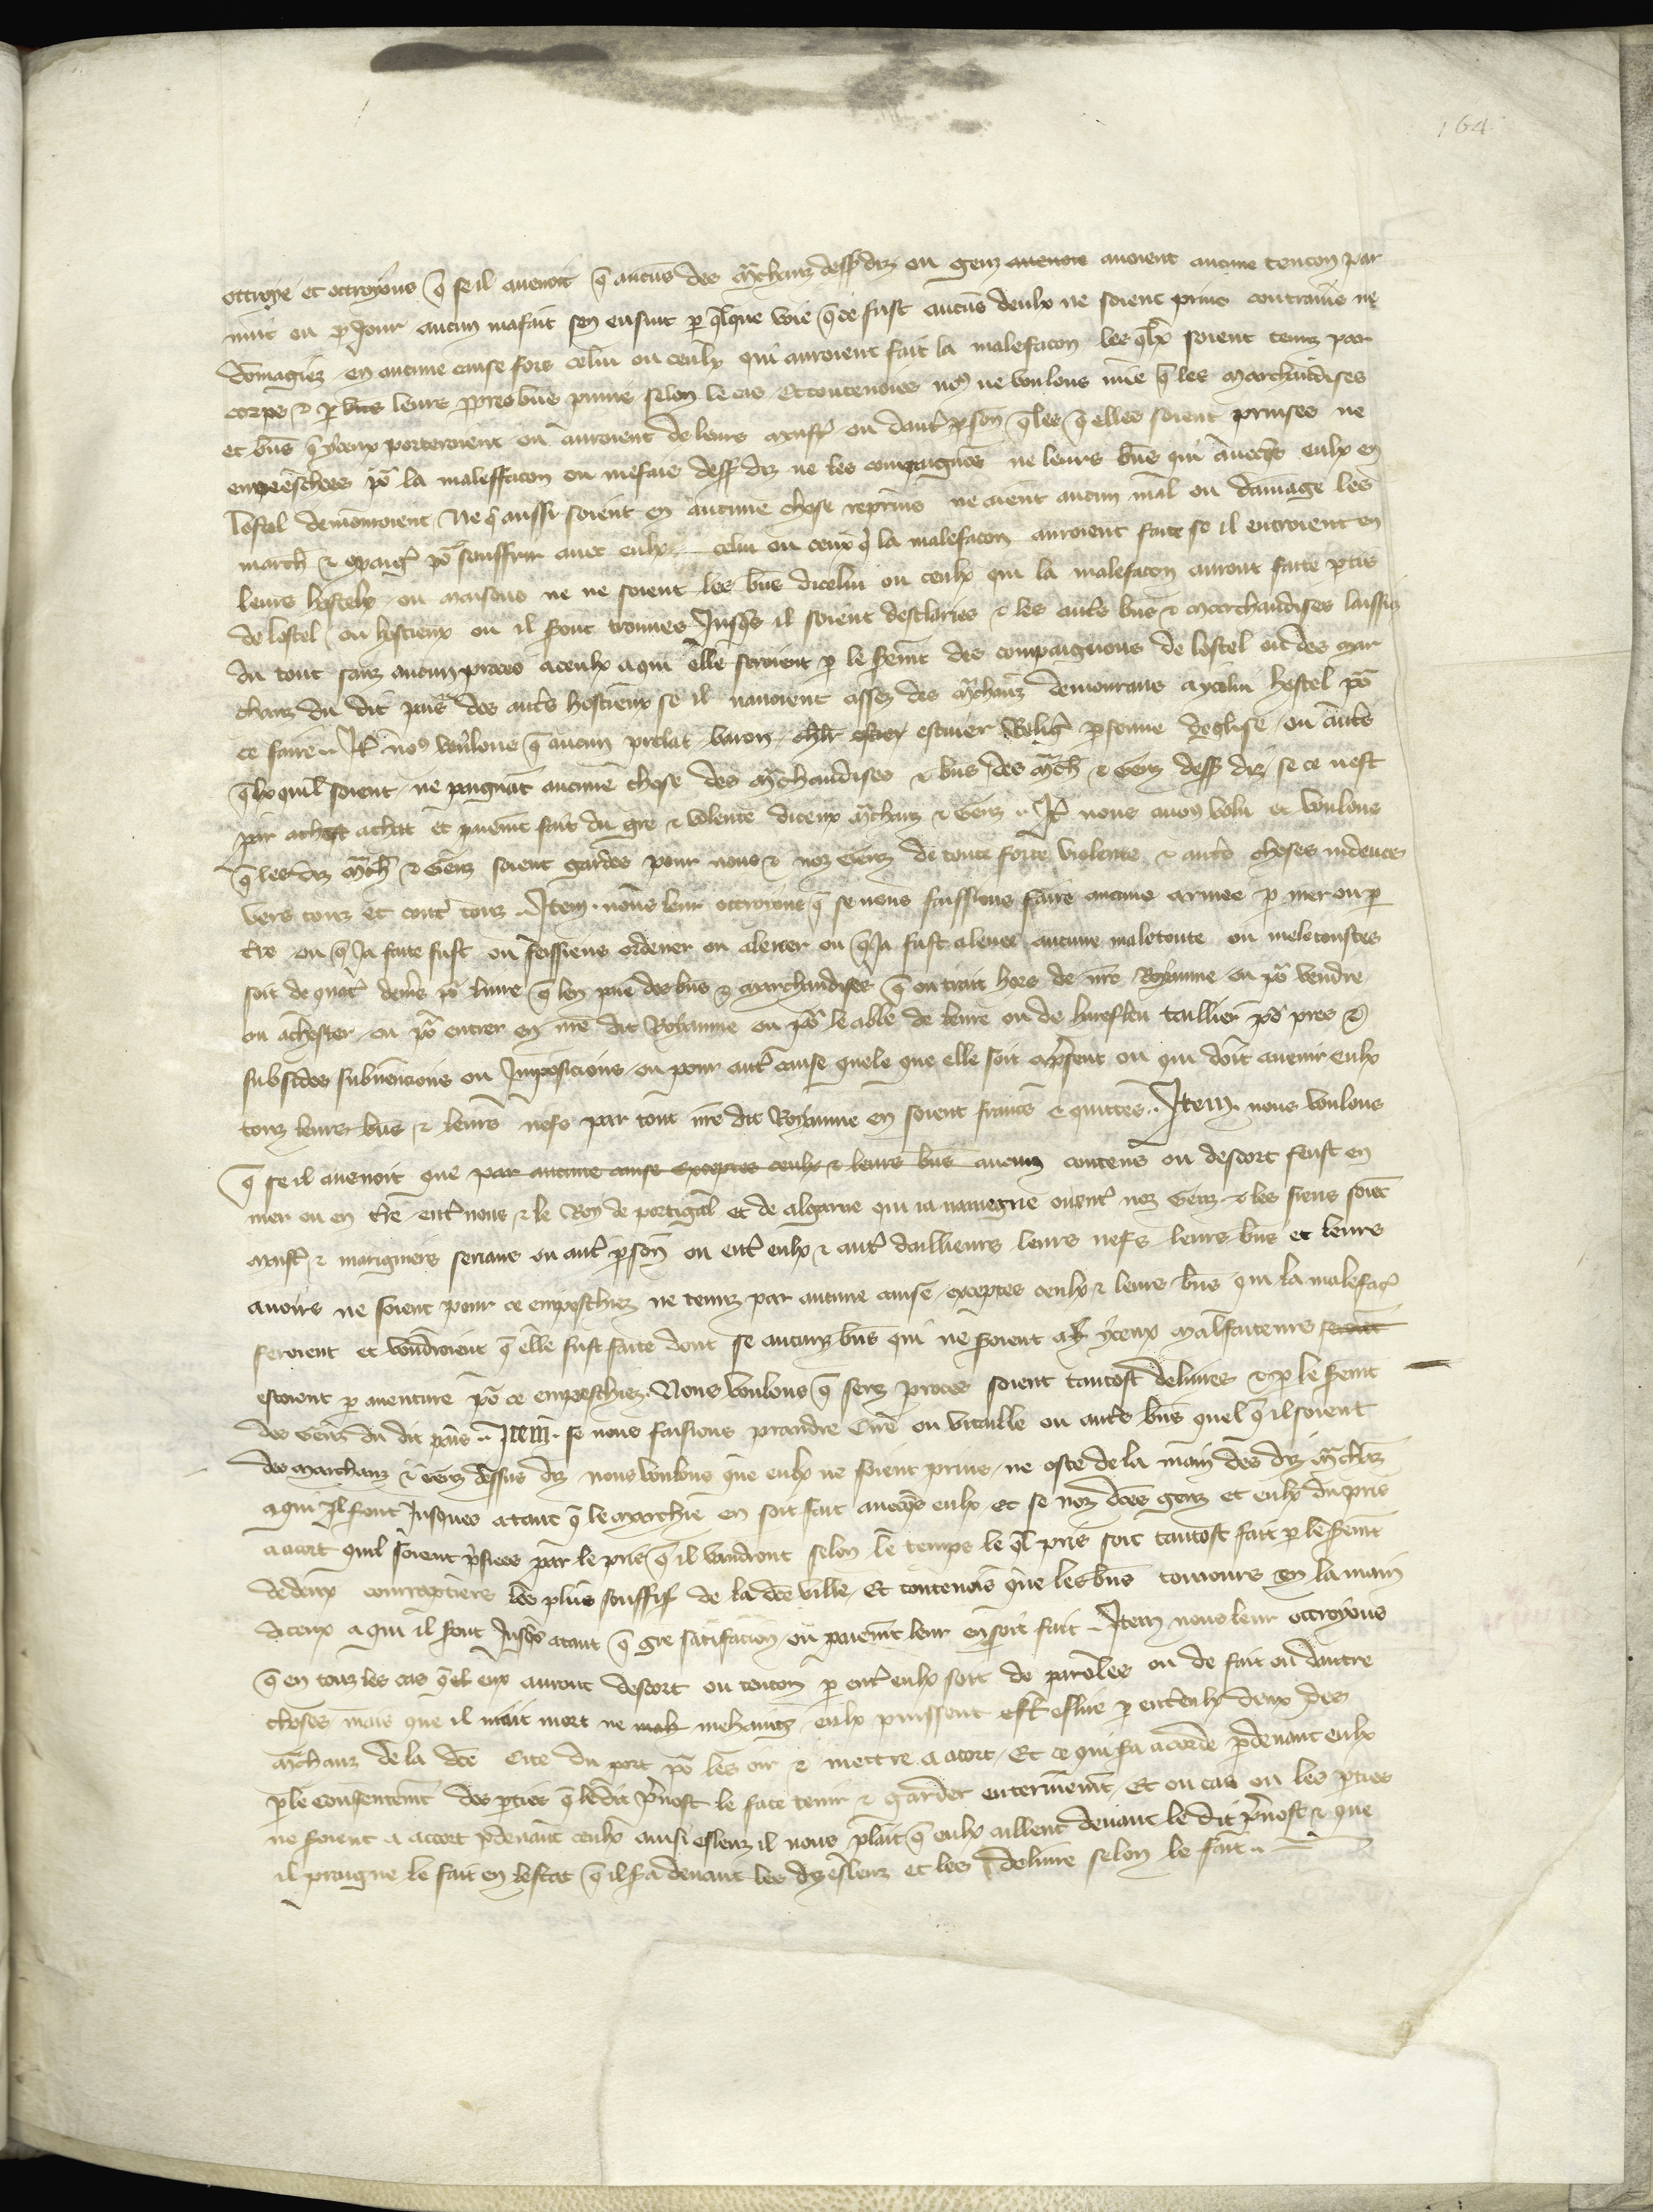 164
ottroye et ottroyons q̄ se il avenoit q̄ aucūs des m̄chanz dess' diz ou genz avenoit avoient aucune tencon par
nuit ou p Jour aucun mafait sen ensuit p q̄lque voie q̄ ce fust aucūs deulx ne soient prins contrains ne
dōmagiez en aucune cause fors celui ou ceulx qui auroient fait la malefacon les q̄lx soient tenuz par
corps & p biens leurs p̄pres biēs punis selon le cas Et toutevoies no9 ne voulons mie q̄ les marchandises
et biēs q̄ yceux porteroient ou auroient de leurs maist' ou daut' p̄son̄ q̄lles q̄ elles soient prinses ne
empeeschees po' la maleffacon ou mefais dess' diz ne les compaignōs ne leurs biēs qui avecq̄s eulx en
lostel demouroient Ne q̄ aussi soient en aucune chose reprins ne aient aucun mal ou damage les
march̄ & cōpaig' po' souffrir avec eulx celui ou ceux q̄ la malefacon auroient faite se il entroient en
leurs hostelx ou maisons ne ne soient les biēs dicelui ou ceulx qui la malefacon auront faite p̄tis
de lostel ou hostieux ou il sont trouves Jusq̄s il soient desclaries & les aut̄s biēs & marchandises laissiez
du tout sanz aucun proces a ceulx a qui elle seroient p le serm̄t des compaignons de lostel ou des mar
chanz du dit pais des aut̄s hostieux se il navoient assez des m̄chanz demourans a ycelui hostel po'
ce faire .. It̄ no9 voulons q̄ aucun prelat baron chl̄r escuier Relig' p̄sonne deglise ou aut̄s
q̄lx quil soient ne preignāt aucune chose des m̄chandises & biēs des m̄ch̄ & Genz dess' diz se ce nest
par achat et paiem̄t fait du gre & volente diceux m̄chanz & Genz .. It̄ nous avōs volu et voulons
q̄ les diz m̄ch̄ & Genz soient gardes pour nous & noz Genz de toute force violente & aut̄s choses indeues
vers touz et cont' touz .. Item . nous leur ottroions q̄ se nous faissions faire aucune armee p mer ou p
t̄re ou q̄ Ja faite fust ou feissiens ordener ou alever ou q̄ Ja fust alevee aucune maletoute ou meletoustes
soit de quat' den̄rs po' livre q̄ len paie des biēs & marchandises q̄ on trait hors de nr̄e Royaume ou po' vendre
ou achester ou po' entrer en nr̄e dit Royaume ou po' le able de leure ou de hareflēu taillier po' pres &
subsides subvēncions ou Jmposicions ou pour aut' cause quele que elle soit a p̄sent ou qui doit avenir eulx
touz leurs biēs & leurs nefs par tout nr̄e dit Royaume en soient francs & quittes .. Item . nous voulons
q̄ se il avenoit que par aucune cause exceptes ceulx & leurs biēs aucun contens ou descort feust en
mer ou en t̄re ent' nous & le Roy de portigal et de algarve qui ia naviegne ou ent' noz Genz & les siens soiēt
maist' & mariguiers servans ou aut' p̄son̄ ou ent' eulx & aut' dailleurs leurs nefs leurs biēs et leurs
avoirs ne soient pour ce empeschiez ne tenuz par aucune cause exceptes ceulx & leurs biēs qui la malefac'
feroient et voudroient q̄ elle fust faite dont se aucunz biēs qui ne soient a yceux malfaiteurs
estoient p aventure po' ce empeschiez . Nous voulons q̄ senz proces soient tantost delivres & p le serm̄t
des Genz du dit pais .. Item . se nous faisions prandre Cire ou vitaille ou aut̄s biēs quel q̄ il soient
des marchanz & Genz dessus diz nous voulons que eulx ne soient prins ne oste de la main des diz m̄chāz
a qui il sont Jusques a tant q̄ le marchie en soit fait avecq̄s eulx Et se noz dc̄es genz et eulx du pris
a acort quil soient p̄sies par le pris q̄ il vaudront selon le temps le q̄l pris soit tantost fait p le serm̄t
de deux courraptiers les plus souffis' de la dc̄e ville Et toutevois que les biēs touiours en la main
diceux a qui il sont Jusq̄s atant q̄ gre satifacion ou paiem̄t leur en soit fait .. Item nous leur ottroyons
q̄ en touz les cas q̄ il eux auront descort ou tencon p ent' eulx soit de paroles ou de fait ou dautre
choses mais que il mait mort ne mehaing eulx puissent est' eslire p ent' eulx deux des
m̄chanz de la dc̄e Cite du port po' les oir & mettre a acort Et ce qui s̄a acorde p devant eulx
p le consentem̄t des p̄ties q̄ le dit p̄vost le face tenir & garder enterinem̄t Et ou cas ou les p̄ties
ne soient a accort p devant ceulx ainsi eslenz il nous plait q̄ eulx aillent devant le dit p̄vost & que
il praigne le fait en lestat q̄ il s̄a devant les diz eslenz et les delivre selon le fait ..